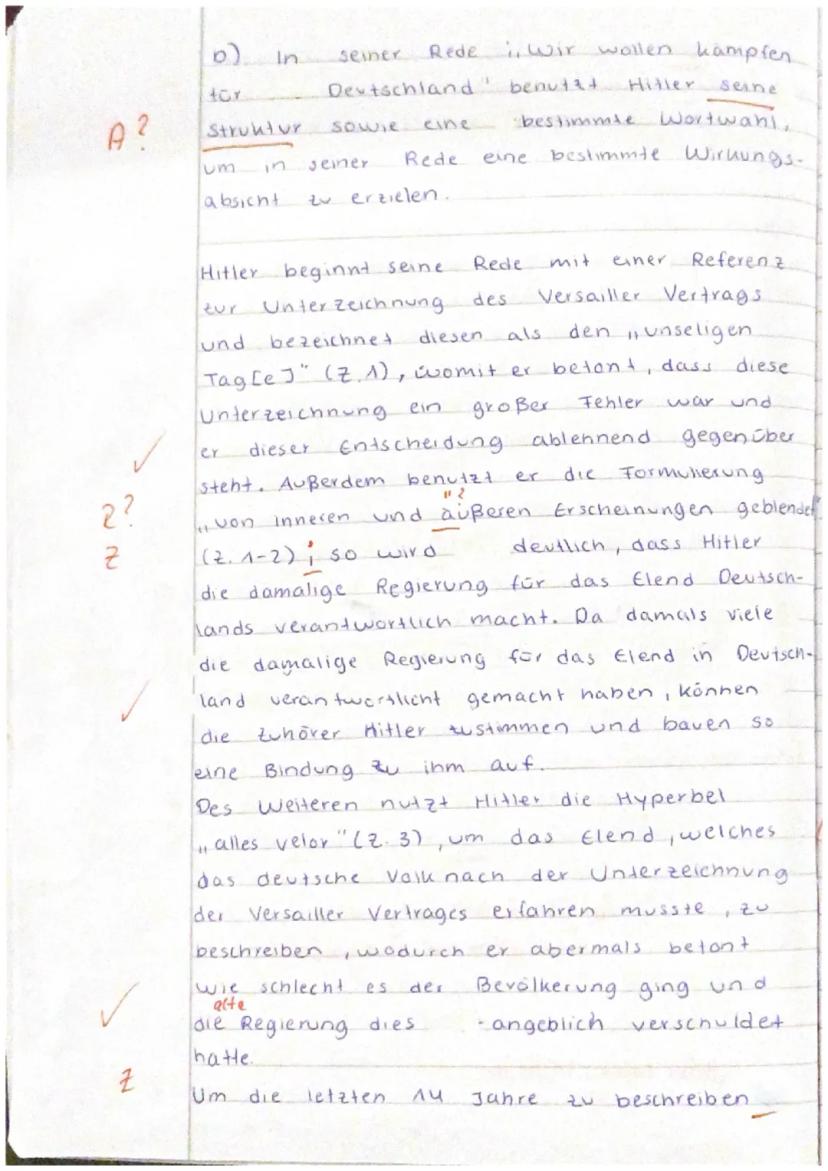 b) In seiner Rede „Wir wollen kämpfen
für Deutschland" benutzt Hitler seine
A? Struktur sowie eine bestimmte Wortwahl,
um in seiner Rede eine bestimmte Wirkungs-
absicht zu erzielen.
Hitler beginnt seine Rede mit einer Referenz
zur Unterzeichnung des Versailler Vertrags
und bezeichnet diesen als den „unseligen
Tag[e]" (Z. 1), womit er betont, dass diese
Unterzeichnung ein großer Fehler war und
✓ er dieser Entscheidung ablehnend gegenüber
steht. Außerdem benutzt er die Formulierung
"?
2? „von inneren und äußeren Erscheinungen geblendet"
Z (Z. 1-2) ; so wird deutlich, dass Hitler
die damalige Regierung für das Elend Deutsch-
lands verantwortlich macht. Da damals viele
die damalige Regierung für das Elend in Deutsch-
✓ land verantwortlicht gemacht haben, können
die Zuhörer Hitler zustimmen und bauen so
eine Bindung zu ihm auf.
Des Weiteren nutzt Hitler die Hyperbel
„alles velor" (Z. 3), um das Elend, welches
das deutsche Volk nach der Unterzeichnung
der Versailler Vertrages erfahren musste, zu
beschreiben, wodurch er abermals betont
wie schlecht es der Bevölkerung ging und
alte
✓ die Regierung dies angeblich verschuldet
hatte.
Z Um die letzten 14 Jahre zu beschreiben